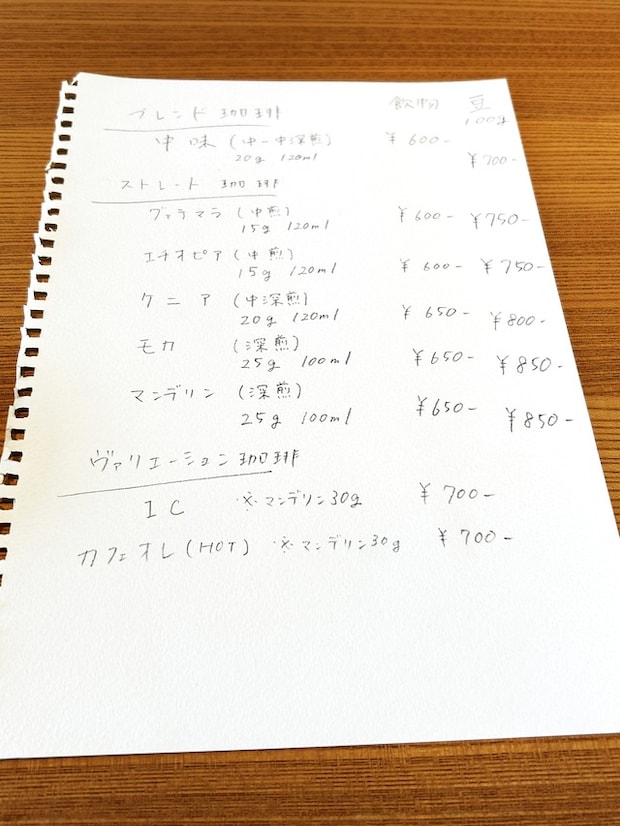 ブレンド 珈琲 飲物 豆
100g
中味 (中ー中深煎) ¥600-
20g 120ml ¥700-
ストレート 珈琲
グァテマラ (中煎) ¥600- ¥750-
15g 120ml
エチオピア (中煎) ¥600- ¥750-
15g 120ml
ケニア (中深煎) ¥650- ¥800-
20g 120ml
モカ (深煎) ¥650- ¥850-
25g 100ml
マンデリン (深煎) ¥650- ¥850-
25g 100ml
ヴァリエーション珈琲
IC ※マンデリン30g ¥700-
カフェオレ(HOT) ※マンデリン30g ¥700-